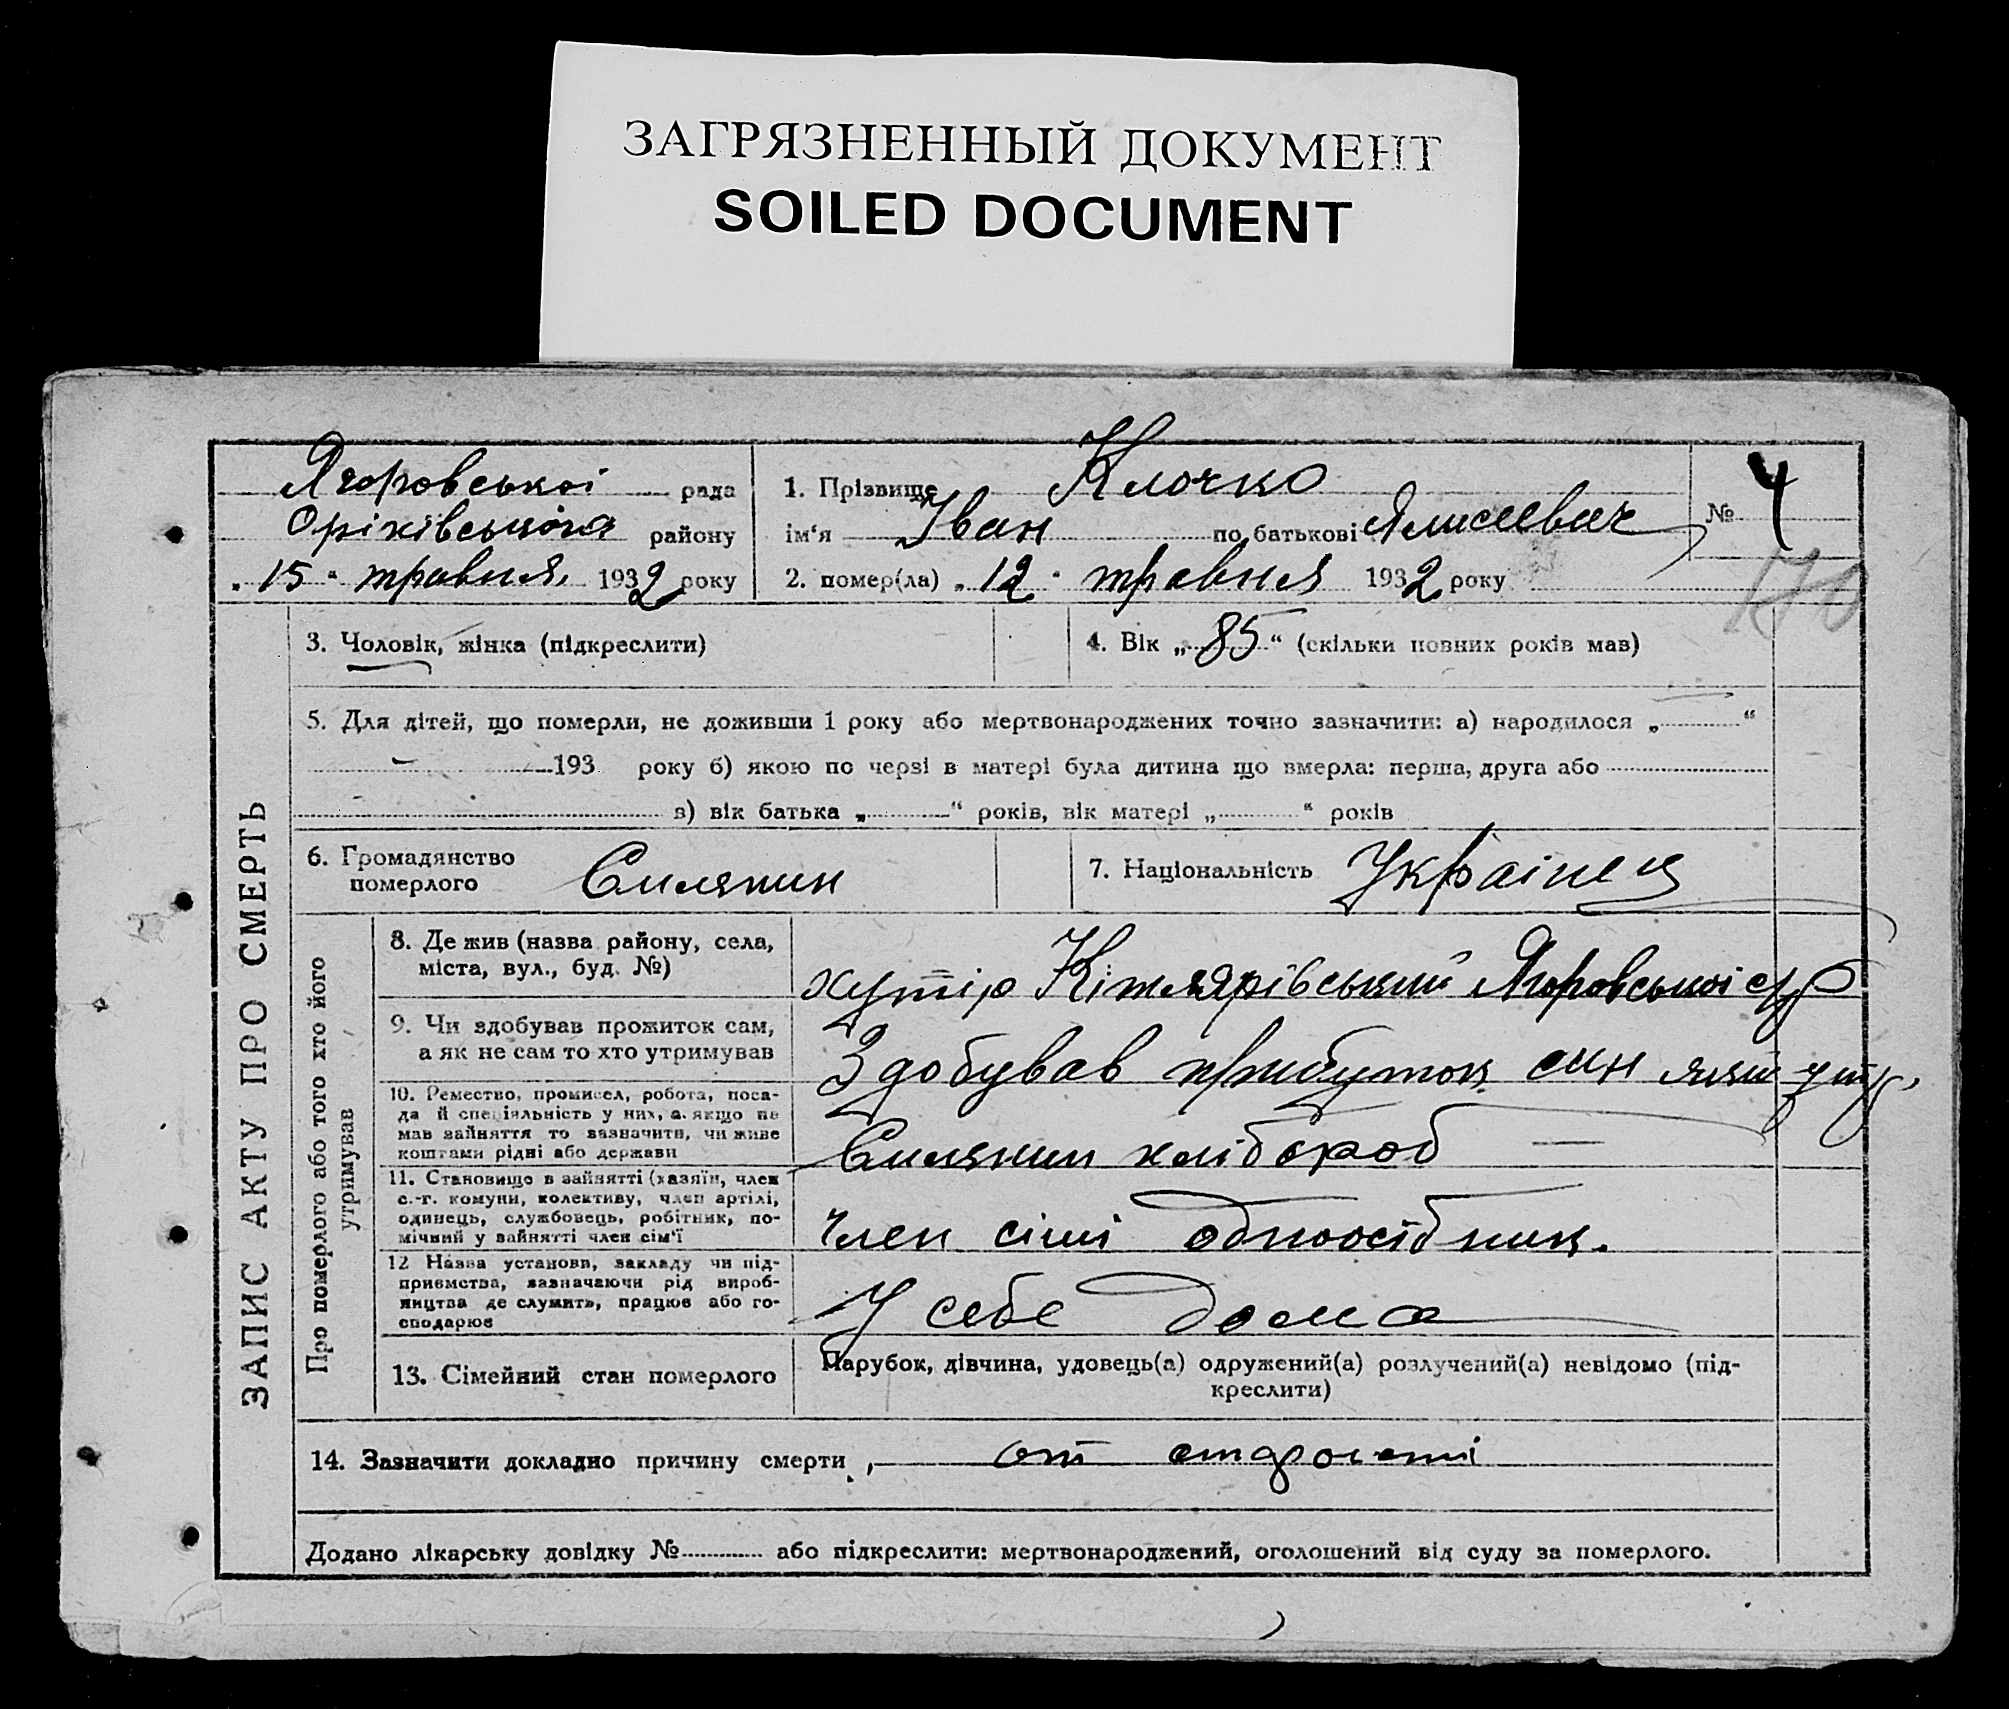 ЗАГРЯЗНЕННЫЙ ДОКУМЕНТ
SOILED DOCUMENT
Ягоровської рада
Оріхівського району
„15“ травня 1932 року
1. Прізвище Клочко
ім‘я Іван по батькові
2. помер(ла) „12“ травня 1932 року
№ 4
170
ЗАПИС АКТУ ПРО СМЕРТЬ
3. Чоловік, жінка (підкреслити)
4. Вік „85“ (скільки повних років мав)
5. Для дітей, що померли, не доживши 1 року або мертвонароджених точно зазначити: а) народилося „ “
193 року б) якою по черзі в матері була дитина що вмерла: перша, друга або
в) вік батька „ “ років, вік матері „ “ років
6. Громадянство
померлого Силянин
7. Національність Українец
Про померлого або того хто його
утримував
8. Де жив (назва району, села,
міста, вул., буд. №)
хутір Кітлярівський Ягоровської с/р
9. Чи здобував прожиток сам,
а як не сам то хто утримував
Здобував прибуток син
10. Ремество, промисел, робота, поса-
да й спеціяльність у них, а якщо не
мав зайняття то зазначити, чи живе
коштами рідні або держави
Силянин хлібороб —
11. Становище в зайнятті (хазяїн, член
с.-г. комуни, колективу, член артілі,
одинець, службовець, робітник, по-
мічний у зайнятті член сім'ї
член сімї одноосібник.
12 Назва установи, закладу чи під-
приємства, зазначаючи рід вироб-
ництва де служить, працює або го-
сподарює
У себе дома
13. Сімейний стан померлого
Парубок, дівчина, удовець(а) одружений(а) розлучений(а) невідомо (під-
креслити)
14. Зазначити докладно причину смерти, от старості
Додано лікарську довідку № або підкреслити: мертвонароджений, оголошений від суду за померлого.